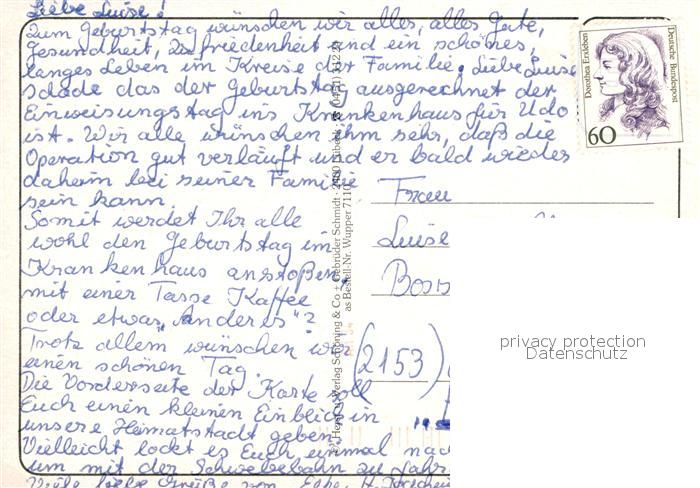 Liebe Luise!
Zum Geburtstag wünschen wir alles, alles Gute,
Gesundheit, Zufriedenheit und ein schönes,
langes Leben im Kreise der Familie. Liebe Luise
schade das der Geburtstag ausgerechnet der
Einweisungstag ins Krankenhaus für Udo
ist. Wir alle wünschen ihm sehr, daß die
Operation gut verläuft und er bald wieder
daheim bei seiner Familie
sein kann.
Somit werdet Ihr alle
wohl den Geburtstag im
Krankenhaus anstoßen
mit einer Tasse Kaffee
oder etwas "Anderes"?
Trotz allem wünschen wir
einen schönen Tag.
Die Vorderseite der Karte soll
Euch einen kleinen Einblick in
unsere Heimatstadt geben.
Vielleicht lockt es Euch einmal nach
um mit der Schwebebahn zu fahr
Viele liebe Grüße von
Frau
Luise
(2153)
Dorothea Erxleben
Deutsche Bundespost
60
Verlag Schöning & Co + Gebrüder Schmidt
as Bestell-Nr. Wupper 7110
privacy protection
Datenschutz